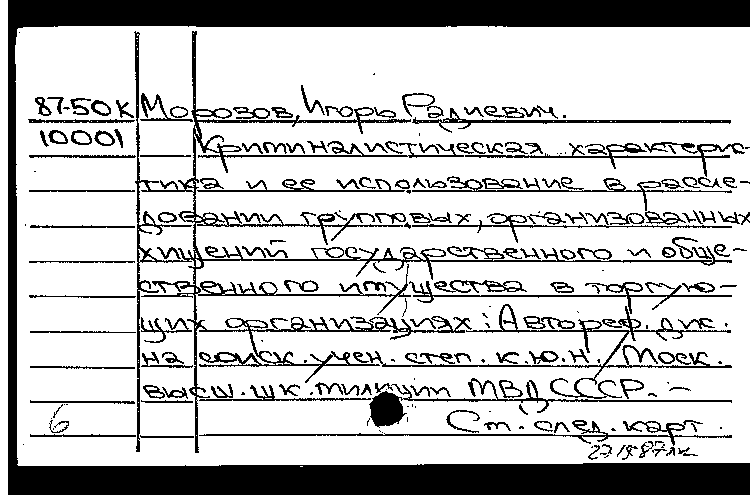 87-50К Морозов, Игорь Радиевич.
10001 Криминалистическая характерис-
тика и ее использование в рассле-
довании групповых, организованных
хищений государственного и обще-
ственного имущества в торгую-
щих организациях: Автореф. дис.
на соиск. учен. степ. к.ю.н. Моск.
высш. шк. милиции МВД СССР. -
6 См. след. карт.